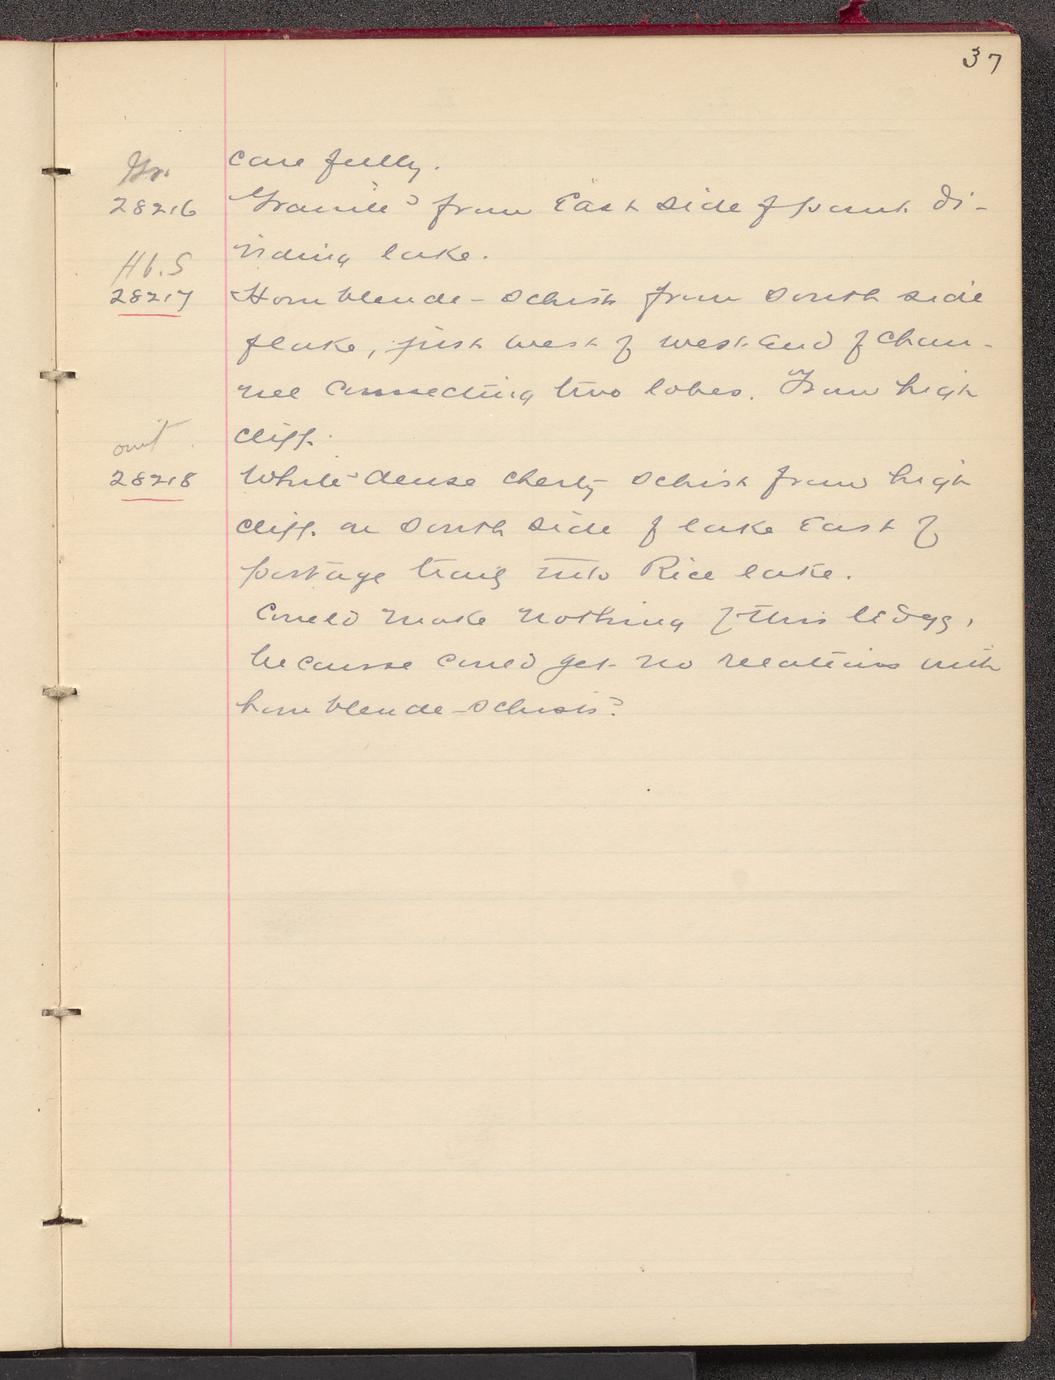 37
carefully.
Gr.
28216 Granite from East side of point di-
viding lake.
Hb.S
28217 Hornblende-schist from south side
of lake, just west of west end of chan-
nel connecting two lobes. From high
cliff.
omit
28218 White dense cherty schist from high
cliff on south side of lake East of
portage trail into Rice lake.
Could make nothing of this ledge,
because could get no relations with
hornblende-schists.